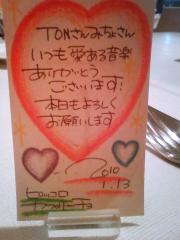 TONさんみちよさん
いつも愛ある音楽
ありがとう
ございます!
本日もよろしく
お願いします
2010
1.13
ピッコロ